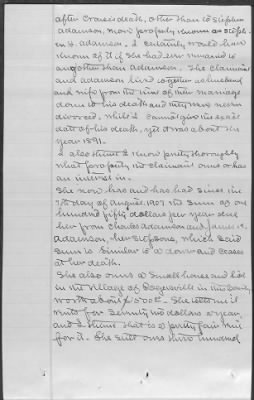 after Craver's death, other than to Stephen
Adamson, more properly known as Steph-
en J. Adamson. I certainly would have
known of it if she had ever married to
another than Adamson. The claimant
and Adamson lived together as husband
and wife from the time of their marriage
down to his death and they were never
divorced. While I cannot give the exact
date of his death, yet it was about the
year 1891.
I also think I know pretty thoroughly
what property the claimant owns or has
an interest in.
She now has and has had since the
7th day of August 1907 the sum of one
hundred fifty dollars per year due
her from Charles Adamson and James
Adamson, her stepsons, which said
sum is similar to a dower and ceases
at her death.
She also owns a small house and lot
in the village of in the County,
worth about $500.00. She lets me it
rents for seventy two dollars a year,
and I think that is a pretty fair rent
for it. She still owns three hundred